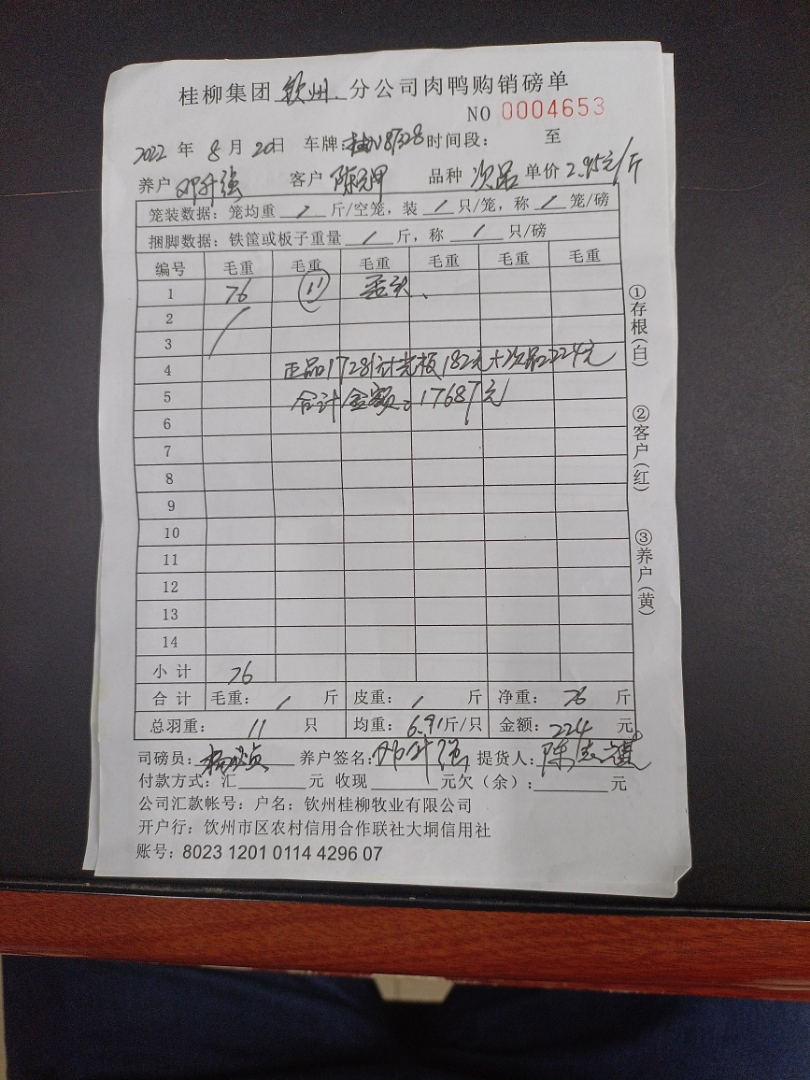 桂柳集团 钦州 分公司肉鸭购销磅单
NO 0004653
2022 年 8 月 20 日 车牌: 时间段: 至
养户 邓升强 客户 陈 品种 次品 单价 2.95元/斤
笼装数据: 笼均重 / 斤/空笼, 装 / 只/笼, 称 / 笼/磅
捆脚数据: 铁筐或板子重量 / 斤, 称 / 只/磅
编号 毛重 毛重 毛重 毛重 毛重 毛重
1 76 11
2
3
4 正品17281 182元+次品224元
5 合计金额: 17687元
6
7
8
9
10
11
12
13
14
小 计 76
合 计 毛重: / 斤 皮重: / 斤 净重: 76 斤
总羽重: 11 只 均重: 6.91斤/只 金额: 224 元
司磅员: 养户签名: 邓升强 提货人: 陈
付款方式: 汇 元 收现 元欠(余): 元
公司汇款帐号: 户名: 钦州桂柳牧业有限公司
开户行: 钦州市区农村信用合作联社大垌信用社
账号: 8023 1201 0114 4296 07
①存根(白)
②客户(红)
③养户(黄)